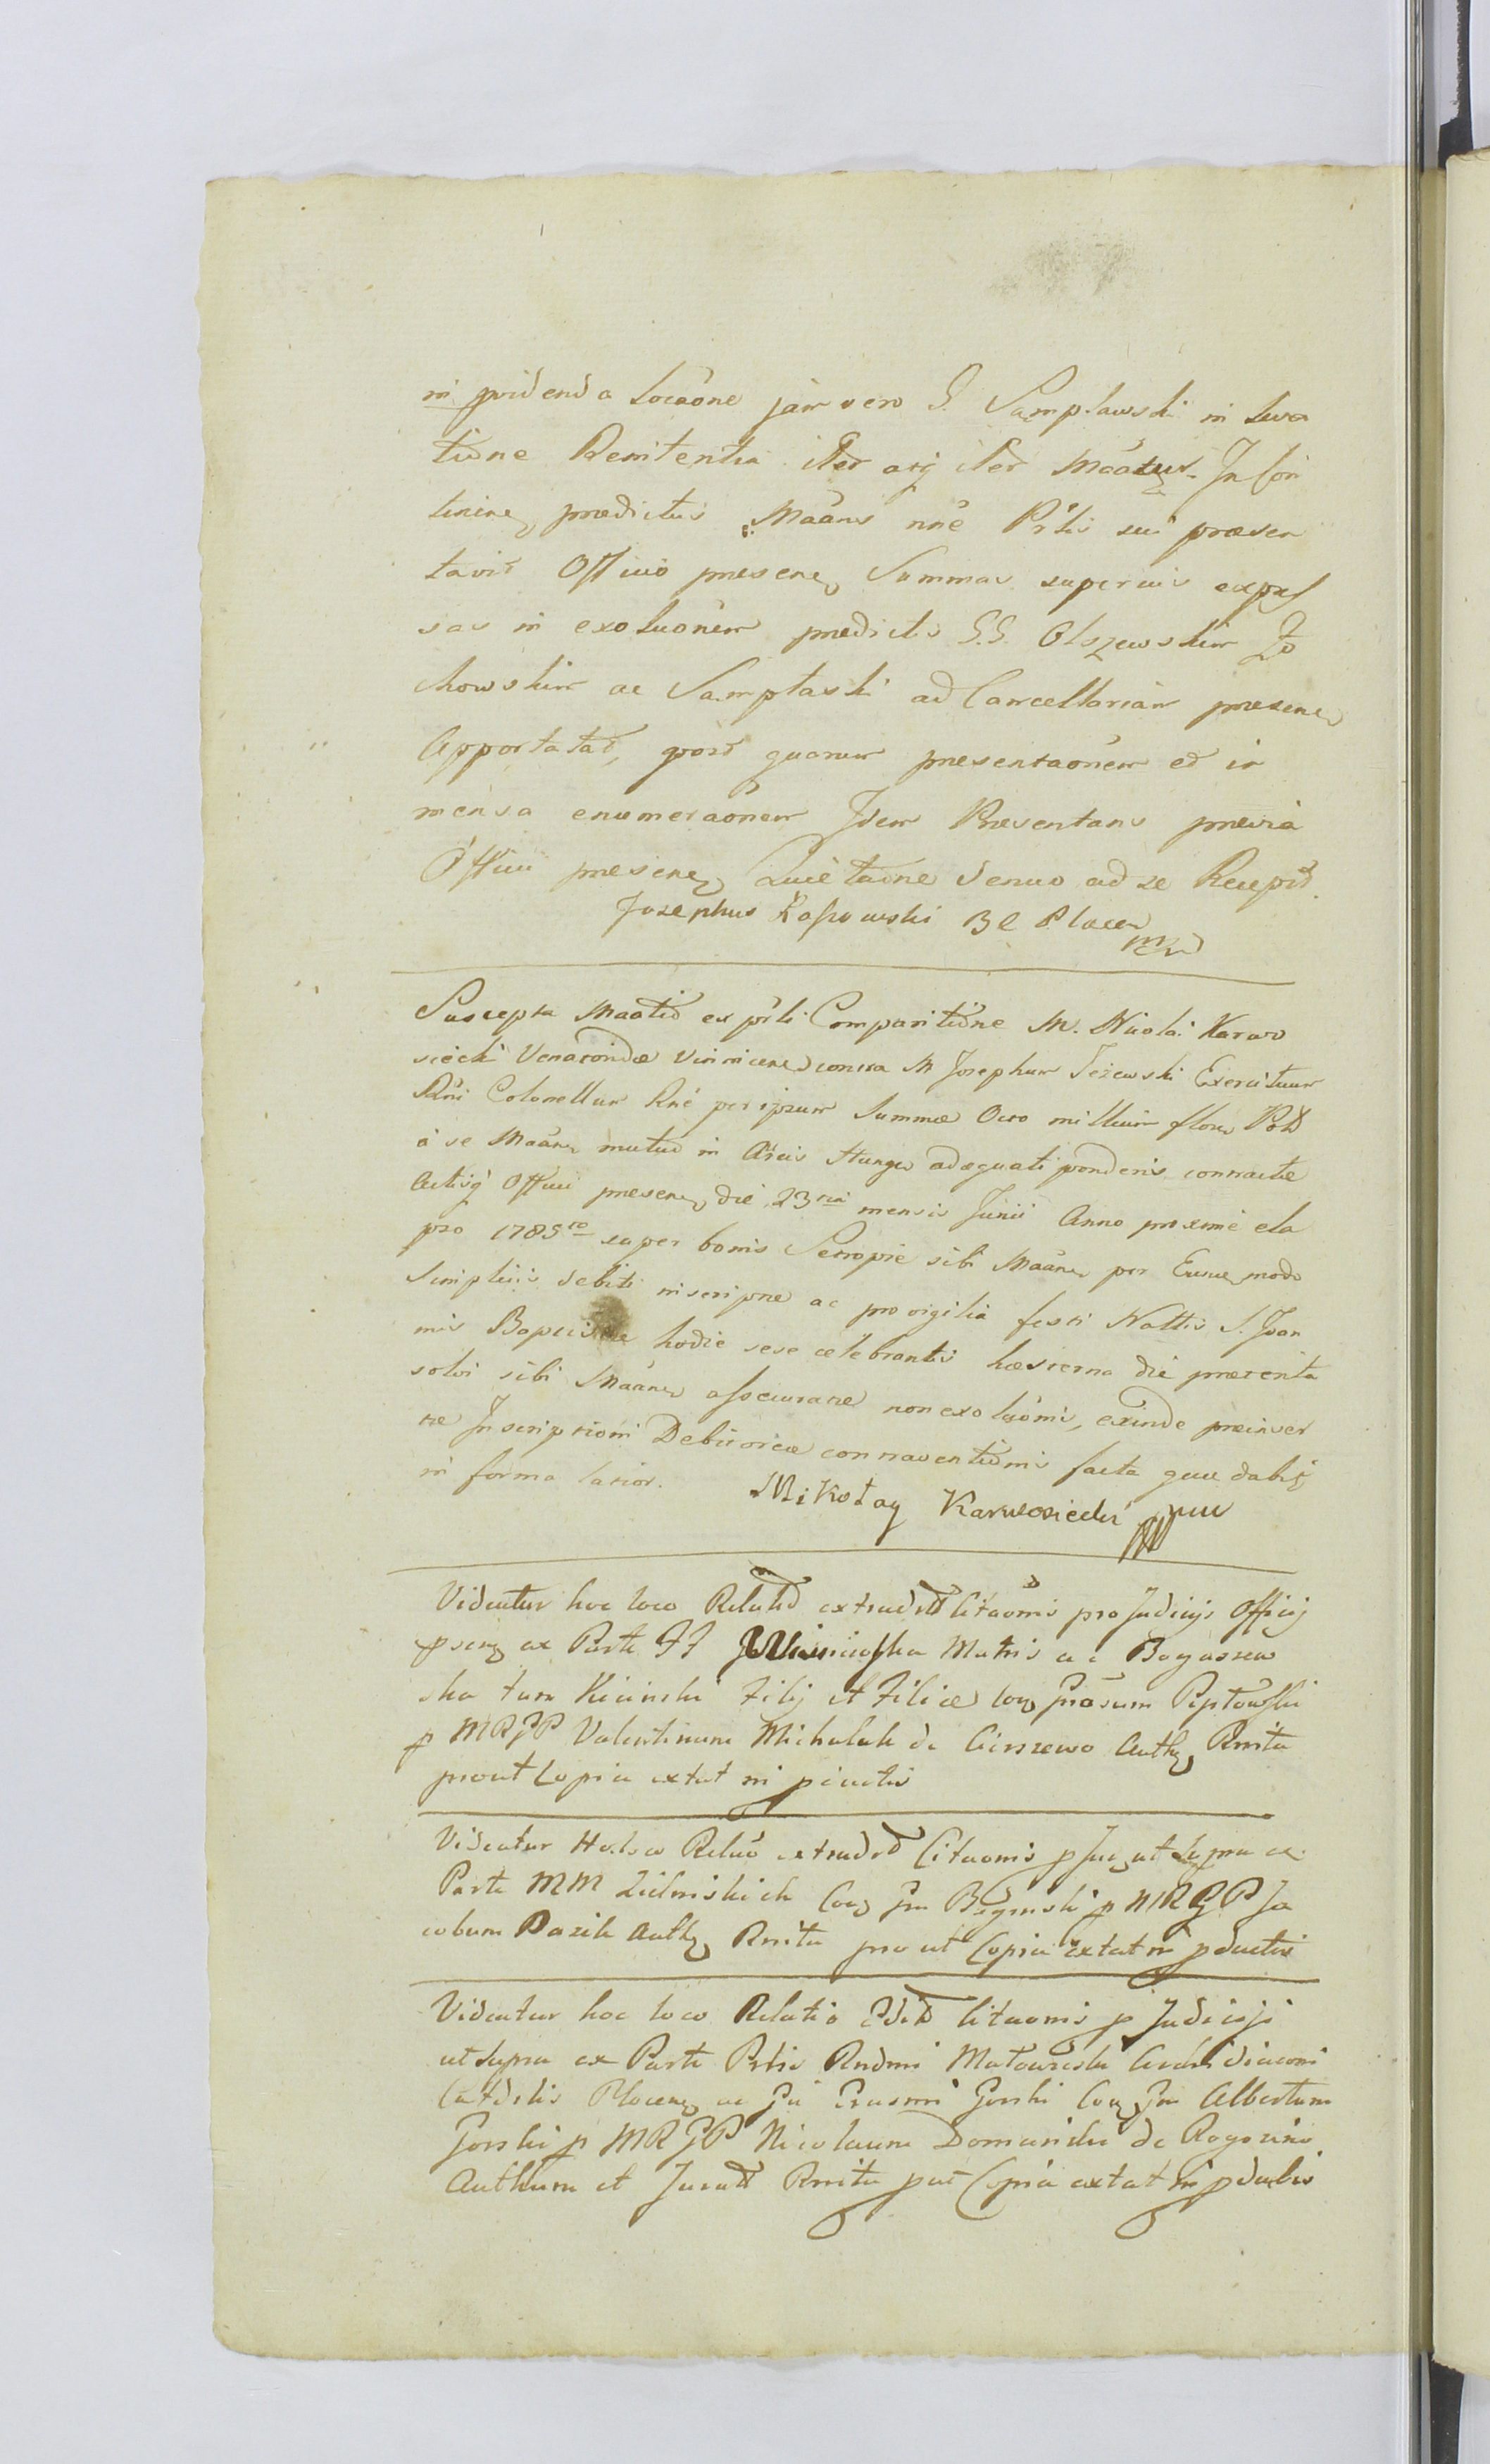 in pvidenda Locaõne jam vero G. Sampławski in Leva
tiõne Renitentia iter atq iter Mãatur. In con
tinine prædictus Mãans nne Prtis sui præsen
tavit Officio presene Summas superius expres
sas in exoluõnem predictis G.G. Olszewskim Zo
chowskim ac Sampłaski ad Cancellariam presene
Apportatas, post quarum presentaõnem et in
mensa enumeraõnem Idem Presentans previa
Officii presene Quietaõne denuo ad se Recepit.
Josephus Kossowski B C Placen
mp
Suscepta Maõtio ex prti Comparitiõne M. Nicolai Karwo
siecki Venatoridæ Vinnicene contra M Josephum Jeżewski Exercituum
Rgni Colonellum Rne per ipsum Summæ Octo millium floren Pol
a se Maane mutuo in Aureis Hunge adæquati ponderis contractæ
Actisq Officii presene die 23tia mensis Junii Anno proxime ela
pso 1785to super bonis Setropie sibi Maane per Eusue modo
Simplicis debiti inscripne ac pro vigilia festi Nattis S. Joan
nis Baptistæ hodie sese celebrantis hæsterna die præterita
solvi sibi Maane assecuratae non exoluõnis, exinde præinser
tæ Inscriptioni Debitoriæ contraventiõnis facta quæ dabit
in forma latior. Mikołay Karwosiecki mp
Videatur hoc loco Relatio extradit Citaõnis pro Judicijs Officij
psene ex Parte FF Winnicka Matris ac Bogatzew
ska tum Kicinski Filij et Filiæ Con Grosum Peptowski
p MRGP Valentinum Michalak de Cieszewo Authe Rnita
prout Copia extat in pductis
Videatur Hocloco Relaõ extradit Citaonis p Juc ut Supra ex
Parte MM Zielinskich Con Gm Bżeginski p MRGP Ja
cobum Pazik Authe Rnita prout Copia extat in pductis
Videatur hoc loco Relatio Edit Citaonis p Judicijs
ut Supra ex Parte Prlis Rndmi Matowieski Archidiaconi
Catdrlis Plocene ac Gsi Erasmi Gorski Con Gm Albertum
Gorski p MRGP Nicolaum Domanski de Rogozino
Authum et Jurat Rnita put Copia extat in pductis